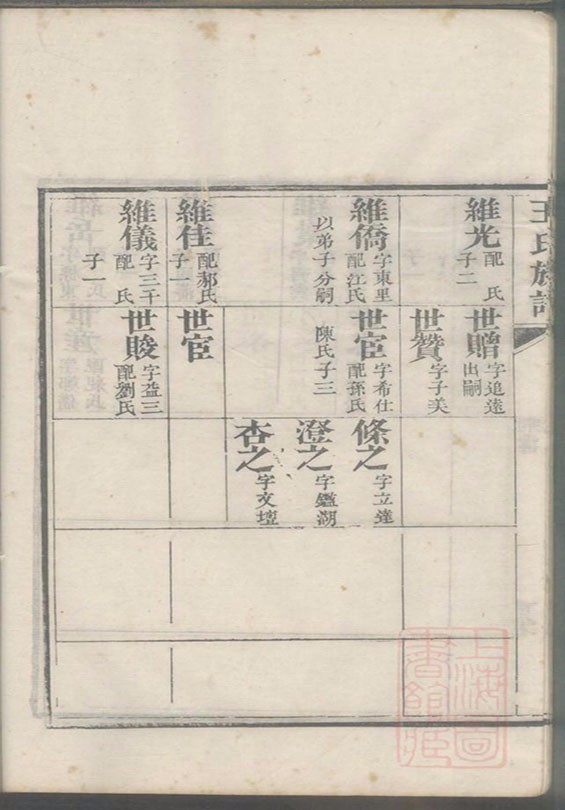 王氏族譜
維光
配 氏
子二
世贈
字追達
出嗣
世贊
字子美
維僑
字東里
配江氏
以弟子分嗣
世宦
字希仕
配孫氏
陳氏子三
條之
字立達
澄之
字鑑湖
杏之
字文壇
維佳
配郝氏
子一
世宦
維儀
字三千
配 氏
子一
世賧
字益三
配劉氏
上海圖
書館藏